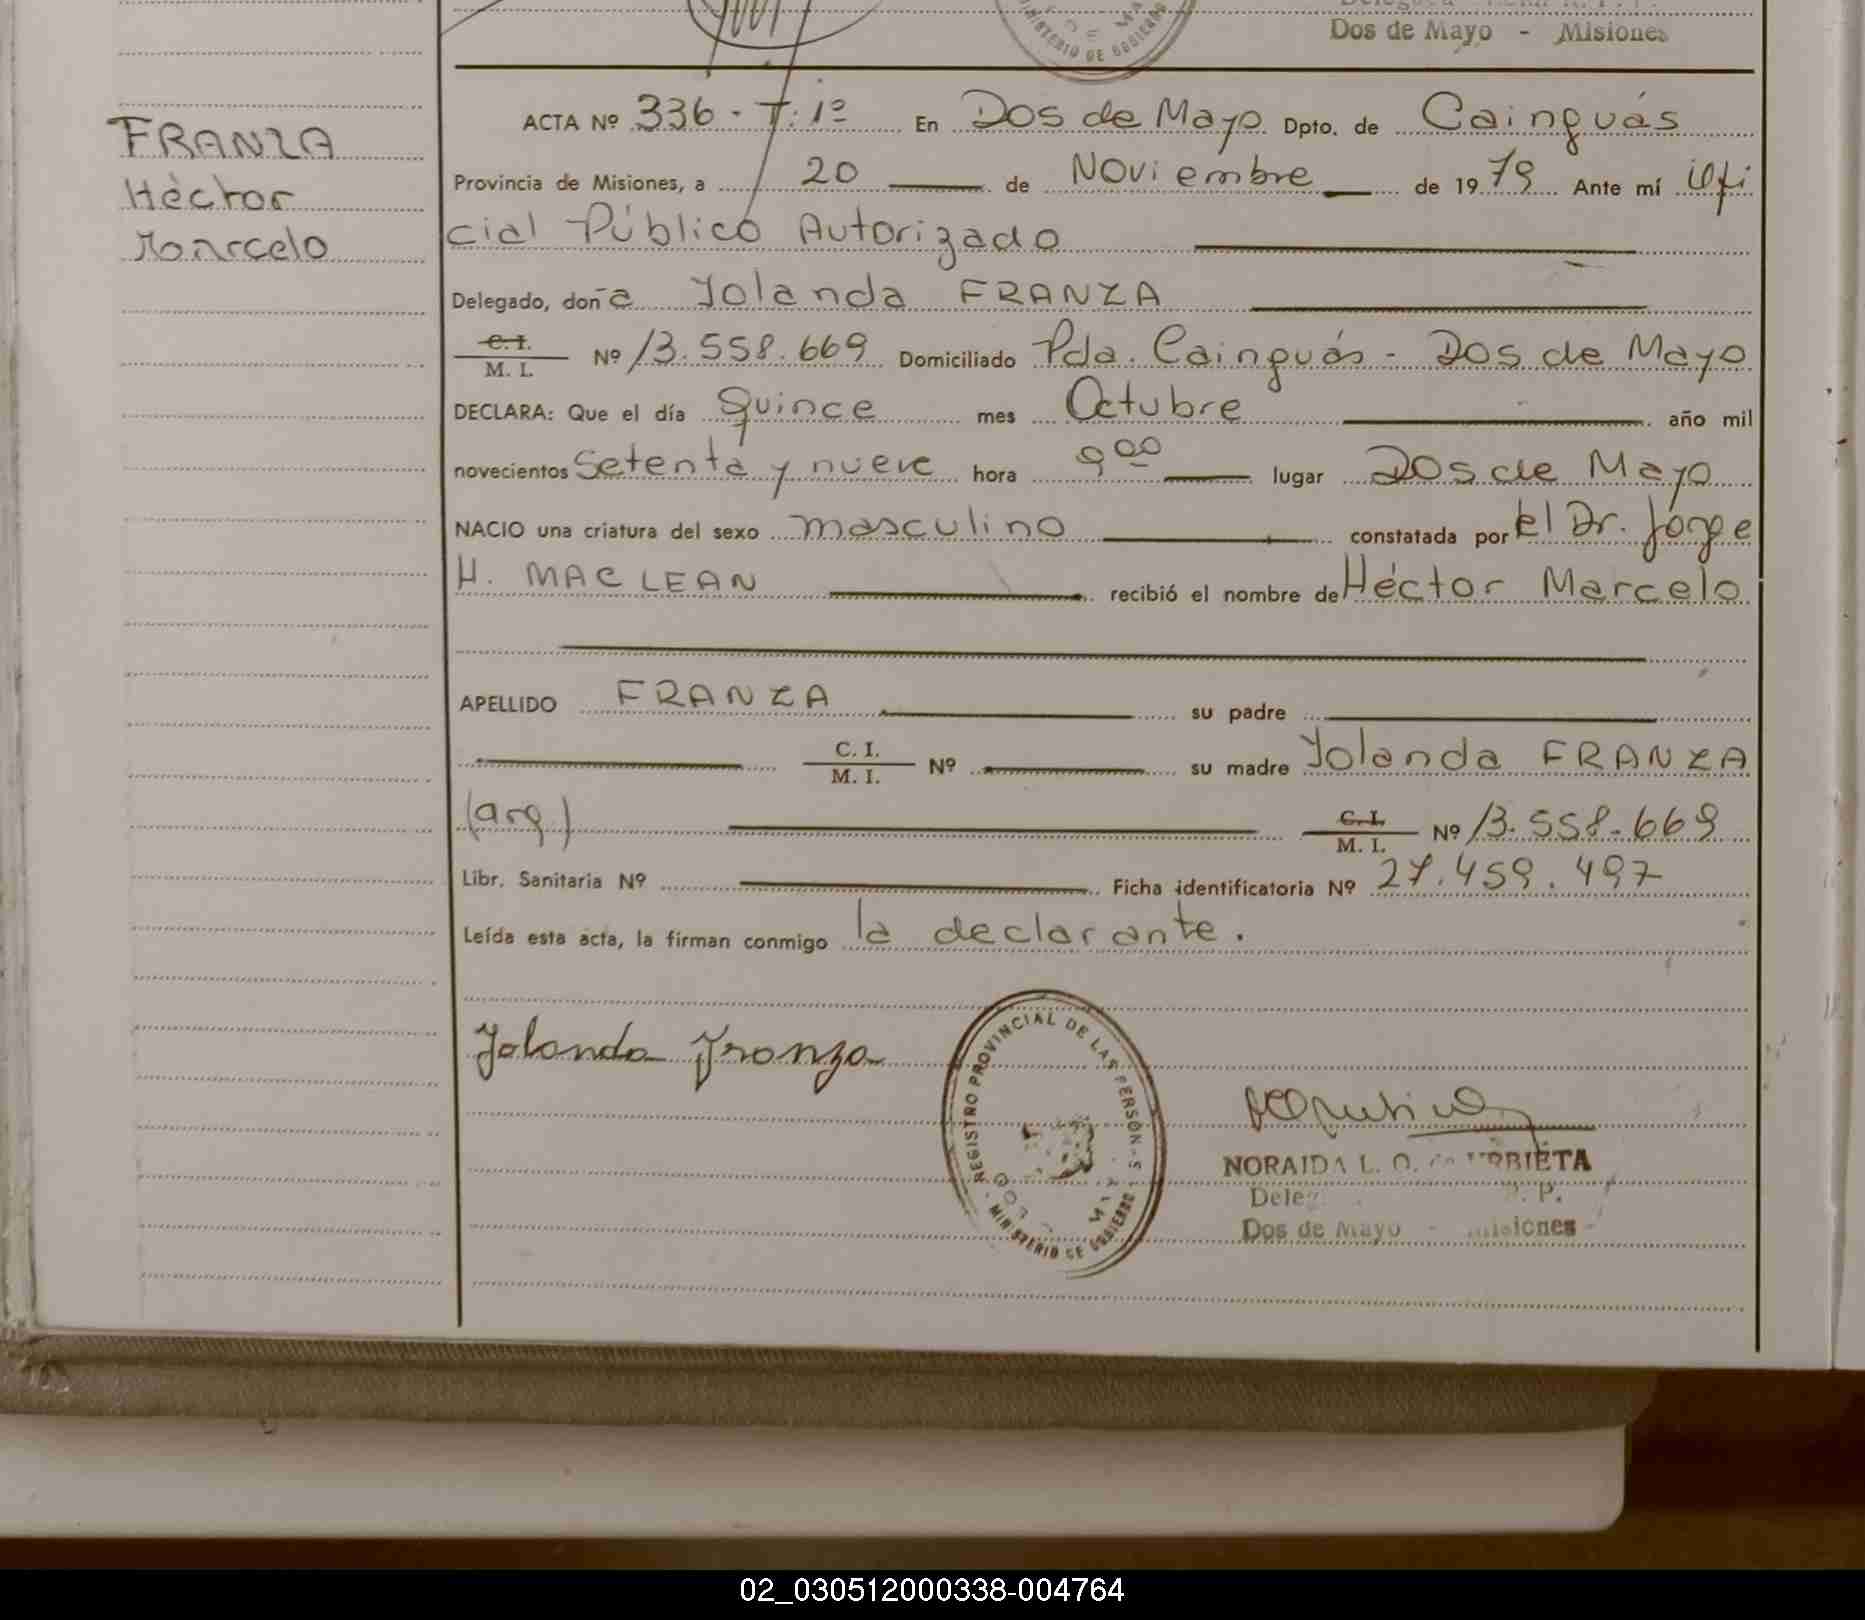 MINISTERIO DE GOBIERNO
Dos de Mayo - Misiones
FRANZA
Héctor
Marcelo
ACTA Nº 336 - T: 1º En Dos de Mayo Dpto. de Cainguás
Provincia de Misiones, a 20 de Noviembre de 1979 Ante mí Ofi
cial Público Autorizado
Delegado, doña Yolanda FRANZA
C. I.
M. I. Nº 13.558.669 Domiciliado Pda. Cainguás - Dos de Mayo
DECLARA: Que el día quince mes Octubre año mil
novecientos setenta y nueve hora 9 00 lugar Dos de Mayo
NACIO una criatura del sexo masculino constatada por el Dr. Jorge
H. MAC LEAN recibió el nombre de Héctor Marcelo
APELLIDO FRANZA su padre
C. I.
M. I. Nº su madre Yolanda FRANZA
(arg) C. I.
M. I. Nº 13.558.669
Libr. Sanitaria Nº Ficha identificatoria Nº 27.459.497
Leída esta acta, la firman conmigo la declarante.
Yolanda Franza
REGISTRO PROVINCIAL DE LAS PERSONAS
MINISTERIO DE GOBIERNO
NORAIDA L. O. de URBIETA
Dos de Mayo - Misiones
02_030512000338-004764